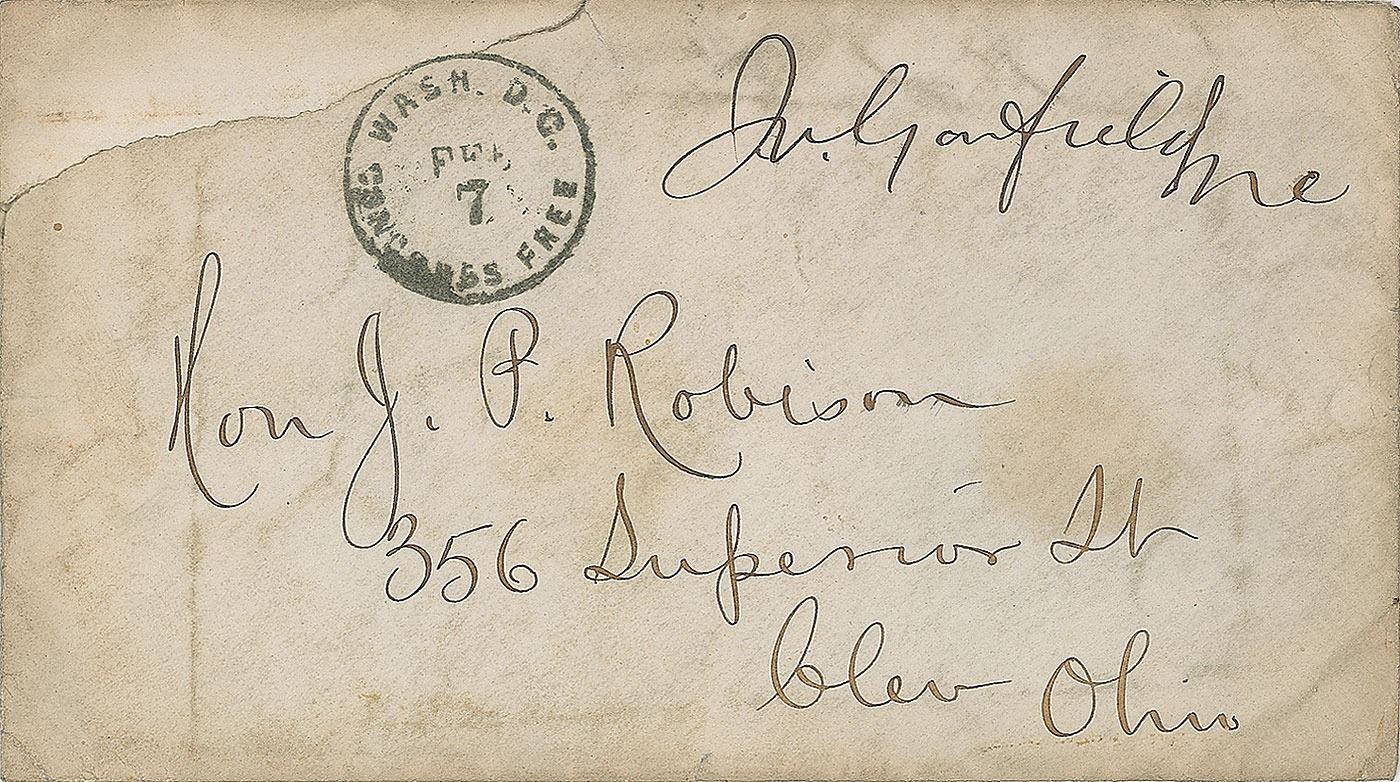 WASH. D.C.
FEB
7
CONGRESS FREE
J.A. Garfield MC
Hon J. P. Robison
356 Superior St
Clev Ohio